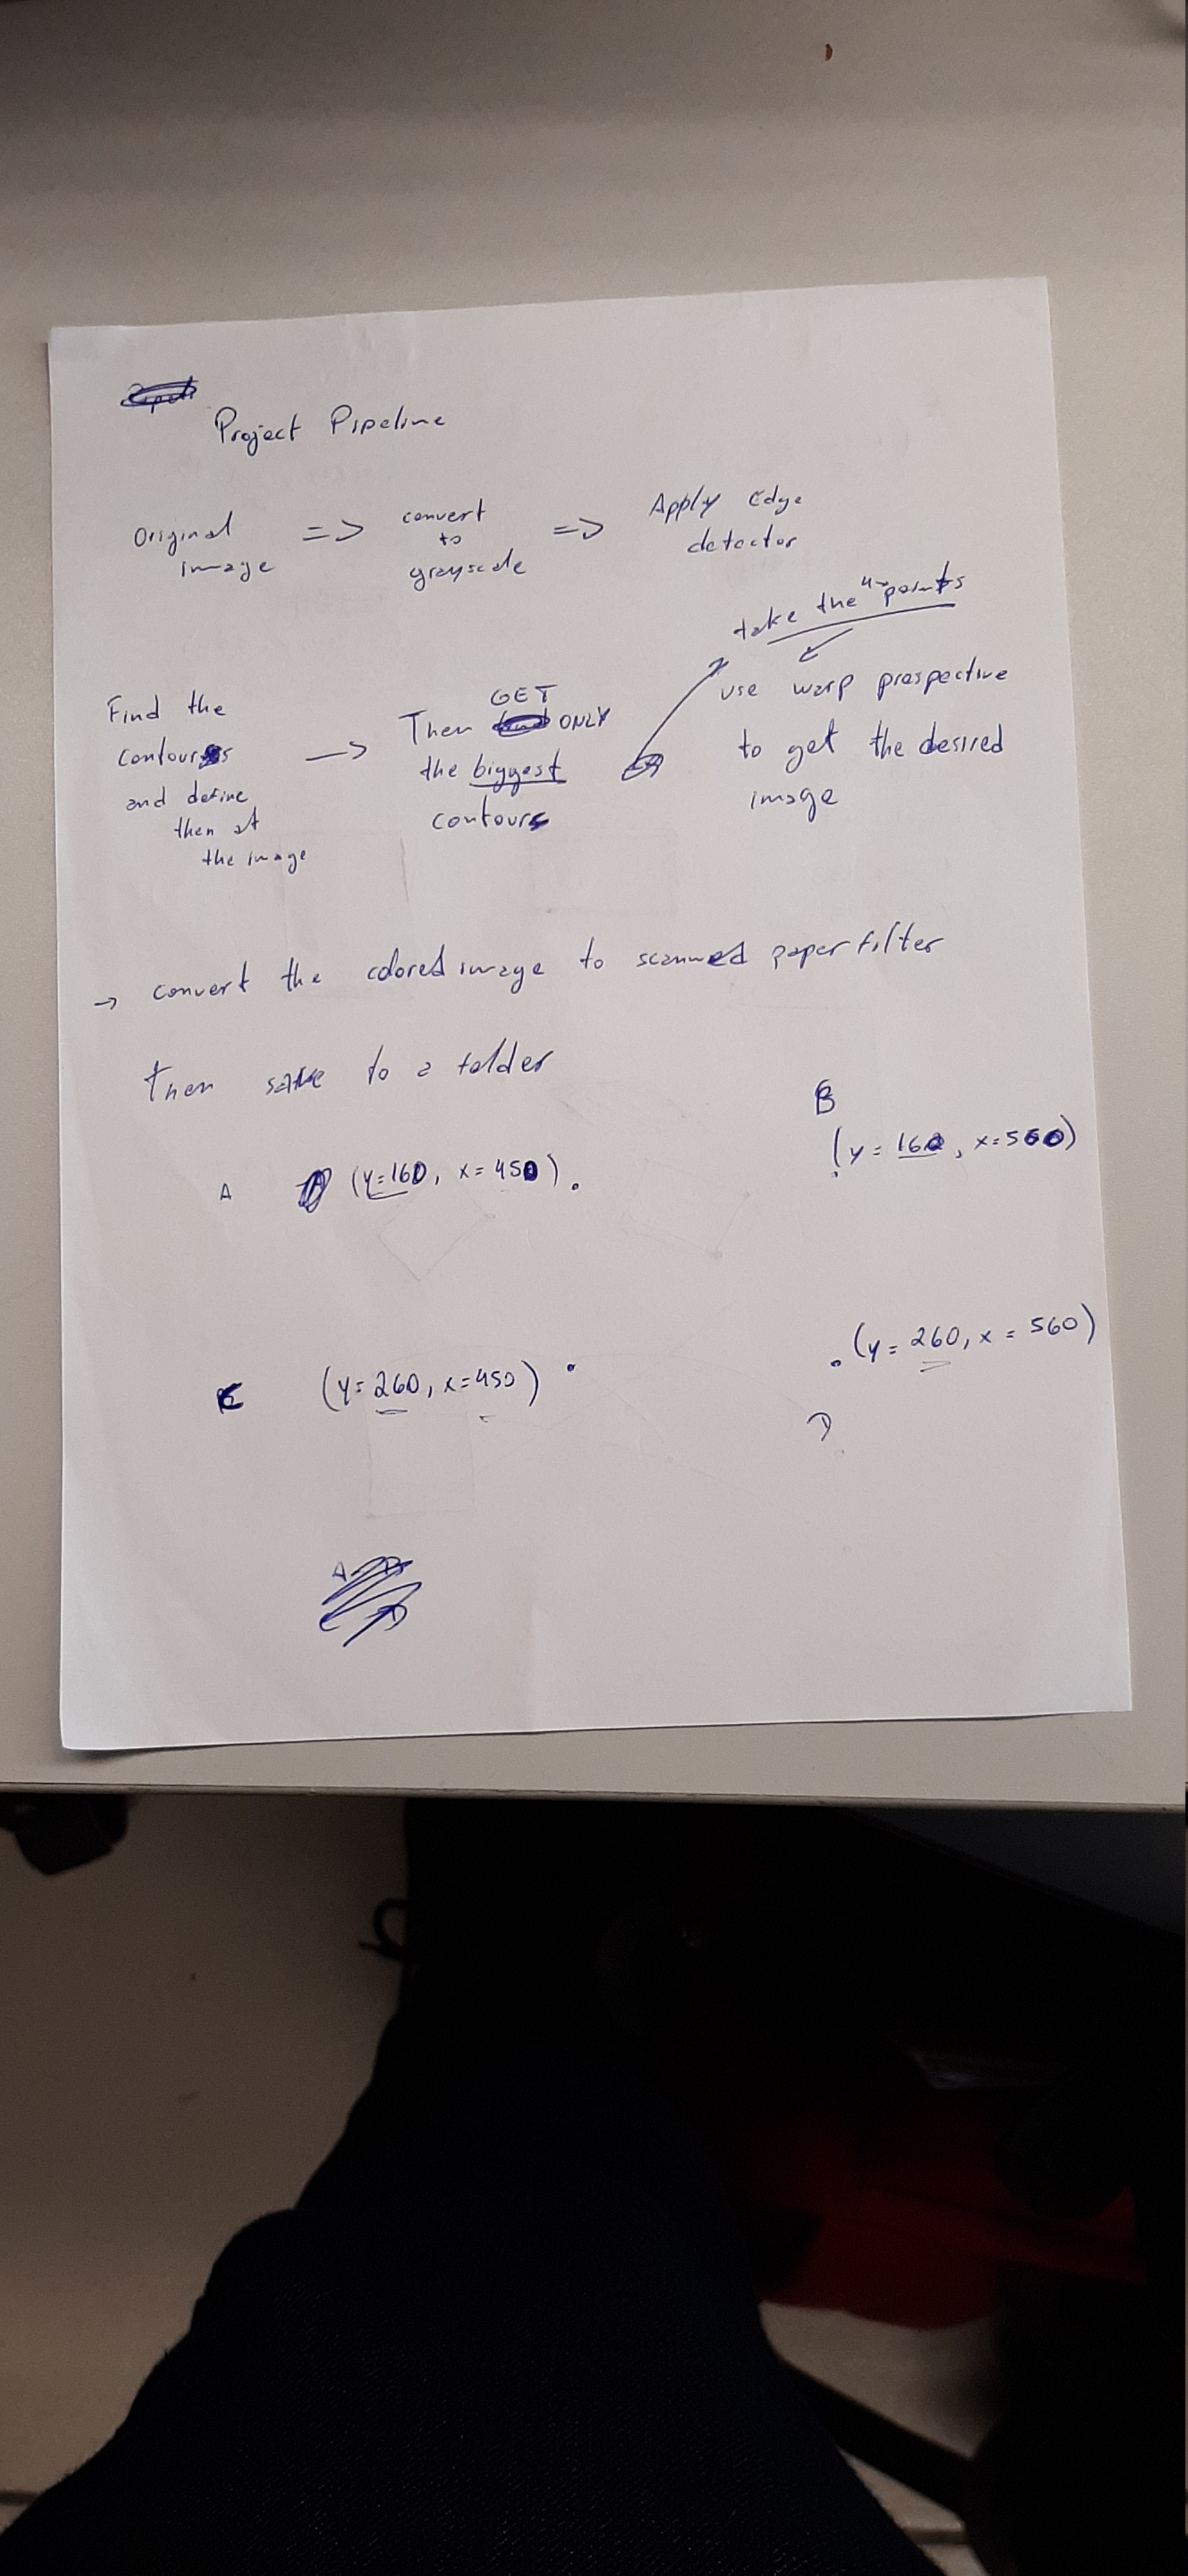 Project Pipeline
Original image => convert to grayscale => Apply Edge detector
take the 4 points
Find the contours and define then at the image -> Then GET ONLY the biggest contours
use warp prospective to get the desired image
-> convert the colored image to scanned paper filter
Then save to a folder
B
A (y=160, x=450)
(y=160, x=560)
C (y=260, x=450)
(y=260, x=560)
D